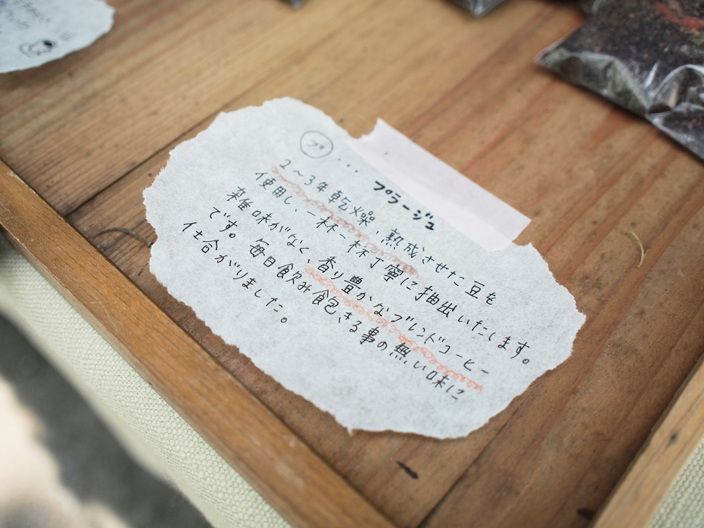 プ … プラージュ
2～3年乾燥、熟成させた豆を
使用し、一杯一杯丁寧に抽出いたします。
雑味がなく、香り豊かなブレンドコーヒー
です。毎日飲み飽きる事の無い味に
仕合がりました。